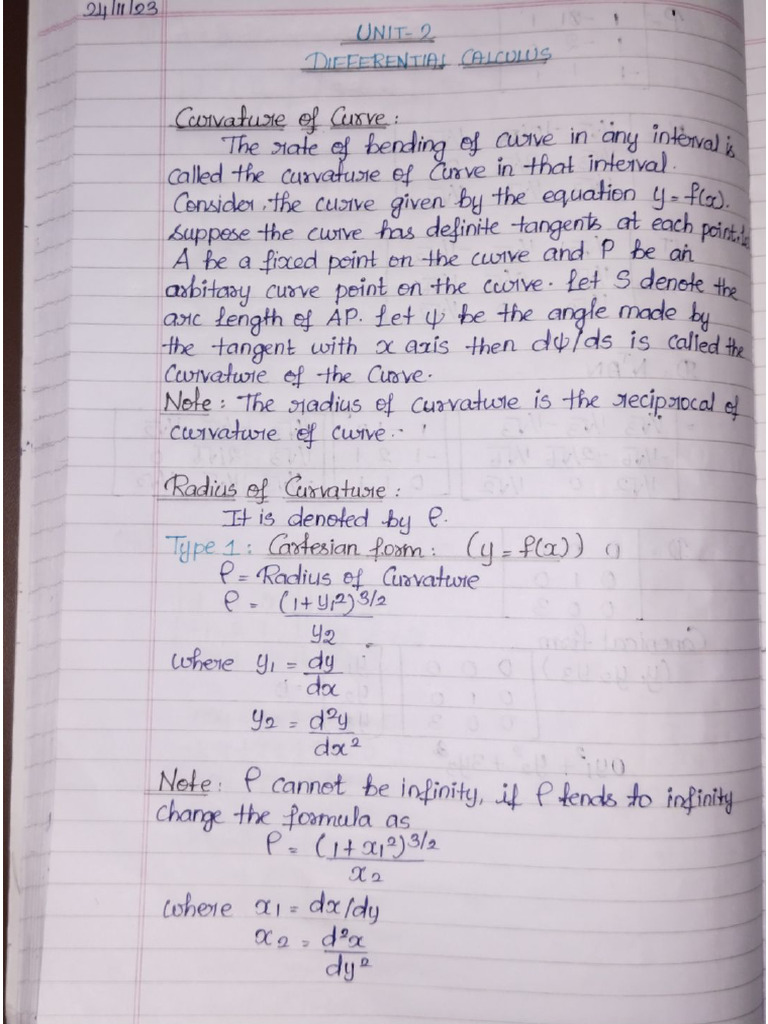 24/11/23
UNIT-2
DIFFERENTIAL CALCULUS
Curvature of Curve:
The rate of bending of curve in any interval is
called the curvature of Curve in that interval.
Consider, the curve given by the equation y = f(x).
Suppose the curve has definite tangents at each point. Let
A be a fixed point on the curve and P be an
arbitary curve point on the curve. Let S denote the
arc length of AP. Let ψ be the angle made by
the tangent with x axis then dψ/ds is called the
Curvature of the Curve.
Note: The radius of curvature is the reciprocal of
curvature of curve.
Radius of Curvature:
It is denoted by ρ.
Type 1: Cartesian form: (y = f(x))
ρ = Radius of Curvature
ρ = (1+y₁²)^3/2
y₂
where y₁ = dy
dx
y₂ = d²y
dx²
Note: ρ cannot be infinity, if ρ tends to infinity
change the formula as
ρ = (1+x₁²)^3/2
x₂
where x₁ = dx/dy
x₂ = d²x
dy²